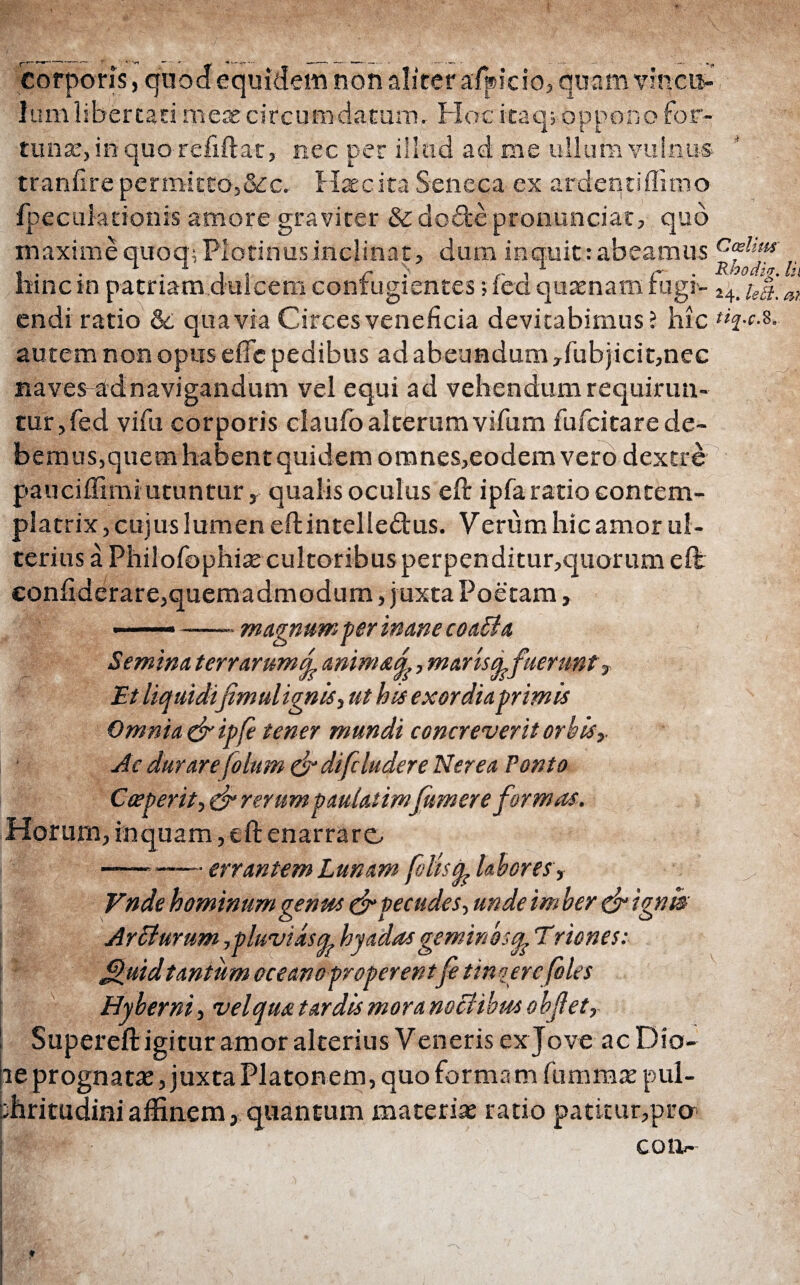 corporis, quod equidem non aliter aſpicio, quam vincu-
lum libertati meæ circumdatum. Hoc itaq; oppono for-
tunæ, in quo reſiſtat, nec per illud ad me ullum vulnus
tranſire permitto, &c. Hæc ita Seneca ex ardentiſſimo
ſpeculationis amore graviter & doctè pronunciat, quò
maximè quoq; Plotinus inclinat, dum inquit: abeamus
Cœlius
Rhodig. li
24. lect. an
tiq.c.8.
hinc in patriam dulcem confugientes; ſed quænam fugi-
endi ratio & qua via Circes veneficia devitabimus? hîc
autem non opus eſſe pedibus ad abeundum, ſubjicit, nec
naves ad navigandum vel equi ad vehendum requirun-
tur, ſed viſu corporis clauſo alterum viſum ſuſcitare de-
bemus, quem habent quidem omnes, eodem verò dextrè
pauciſſimi utuntur, qualis oculus eſt ipſa ratio contem-
platrix, cujus lumen eſt intellectus. Verùm hic amor ul-
terius à Philoſophiæ cultoribus perpenditur, quorum eſt
conſiderare, quemadmodum, juxta Poëtam,
—— —— magnum per inane coacta
Semina terrarumq; animæq;, marisq; fuerunt,
Et liquidi ſimul ignis, ut his exordia primis
Omnia & ipſe tener mundi concreverit orbis,
Ac durare ſolum & diſcludere Nerea Ponto
Cœperit, & rerum paulatim ſumere formas.
Horum, inquam, eſt enarrare
—— —— errantem Lunam ſolisq; labores,
Vnde hominum genus & pecudes, unde imber & ignis
Arcturum, pluviasq; hyadas geminosq; Triones:
Quid tantùm oceano properent ſe tingere ſoles
Hyberni, vel quæ tardis mora noctibus obſtet,
Supereſt igitur amor alterius Veneris ex Jove ac Dio-
ne prognatæ, juxta Platonem, quo formam ſummæ pul-
chritudini affinem, quantum materiæ ratio patitur, pro
con-